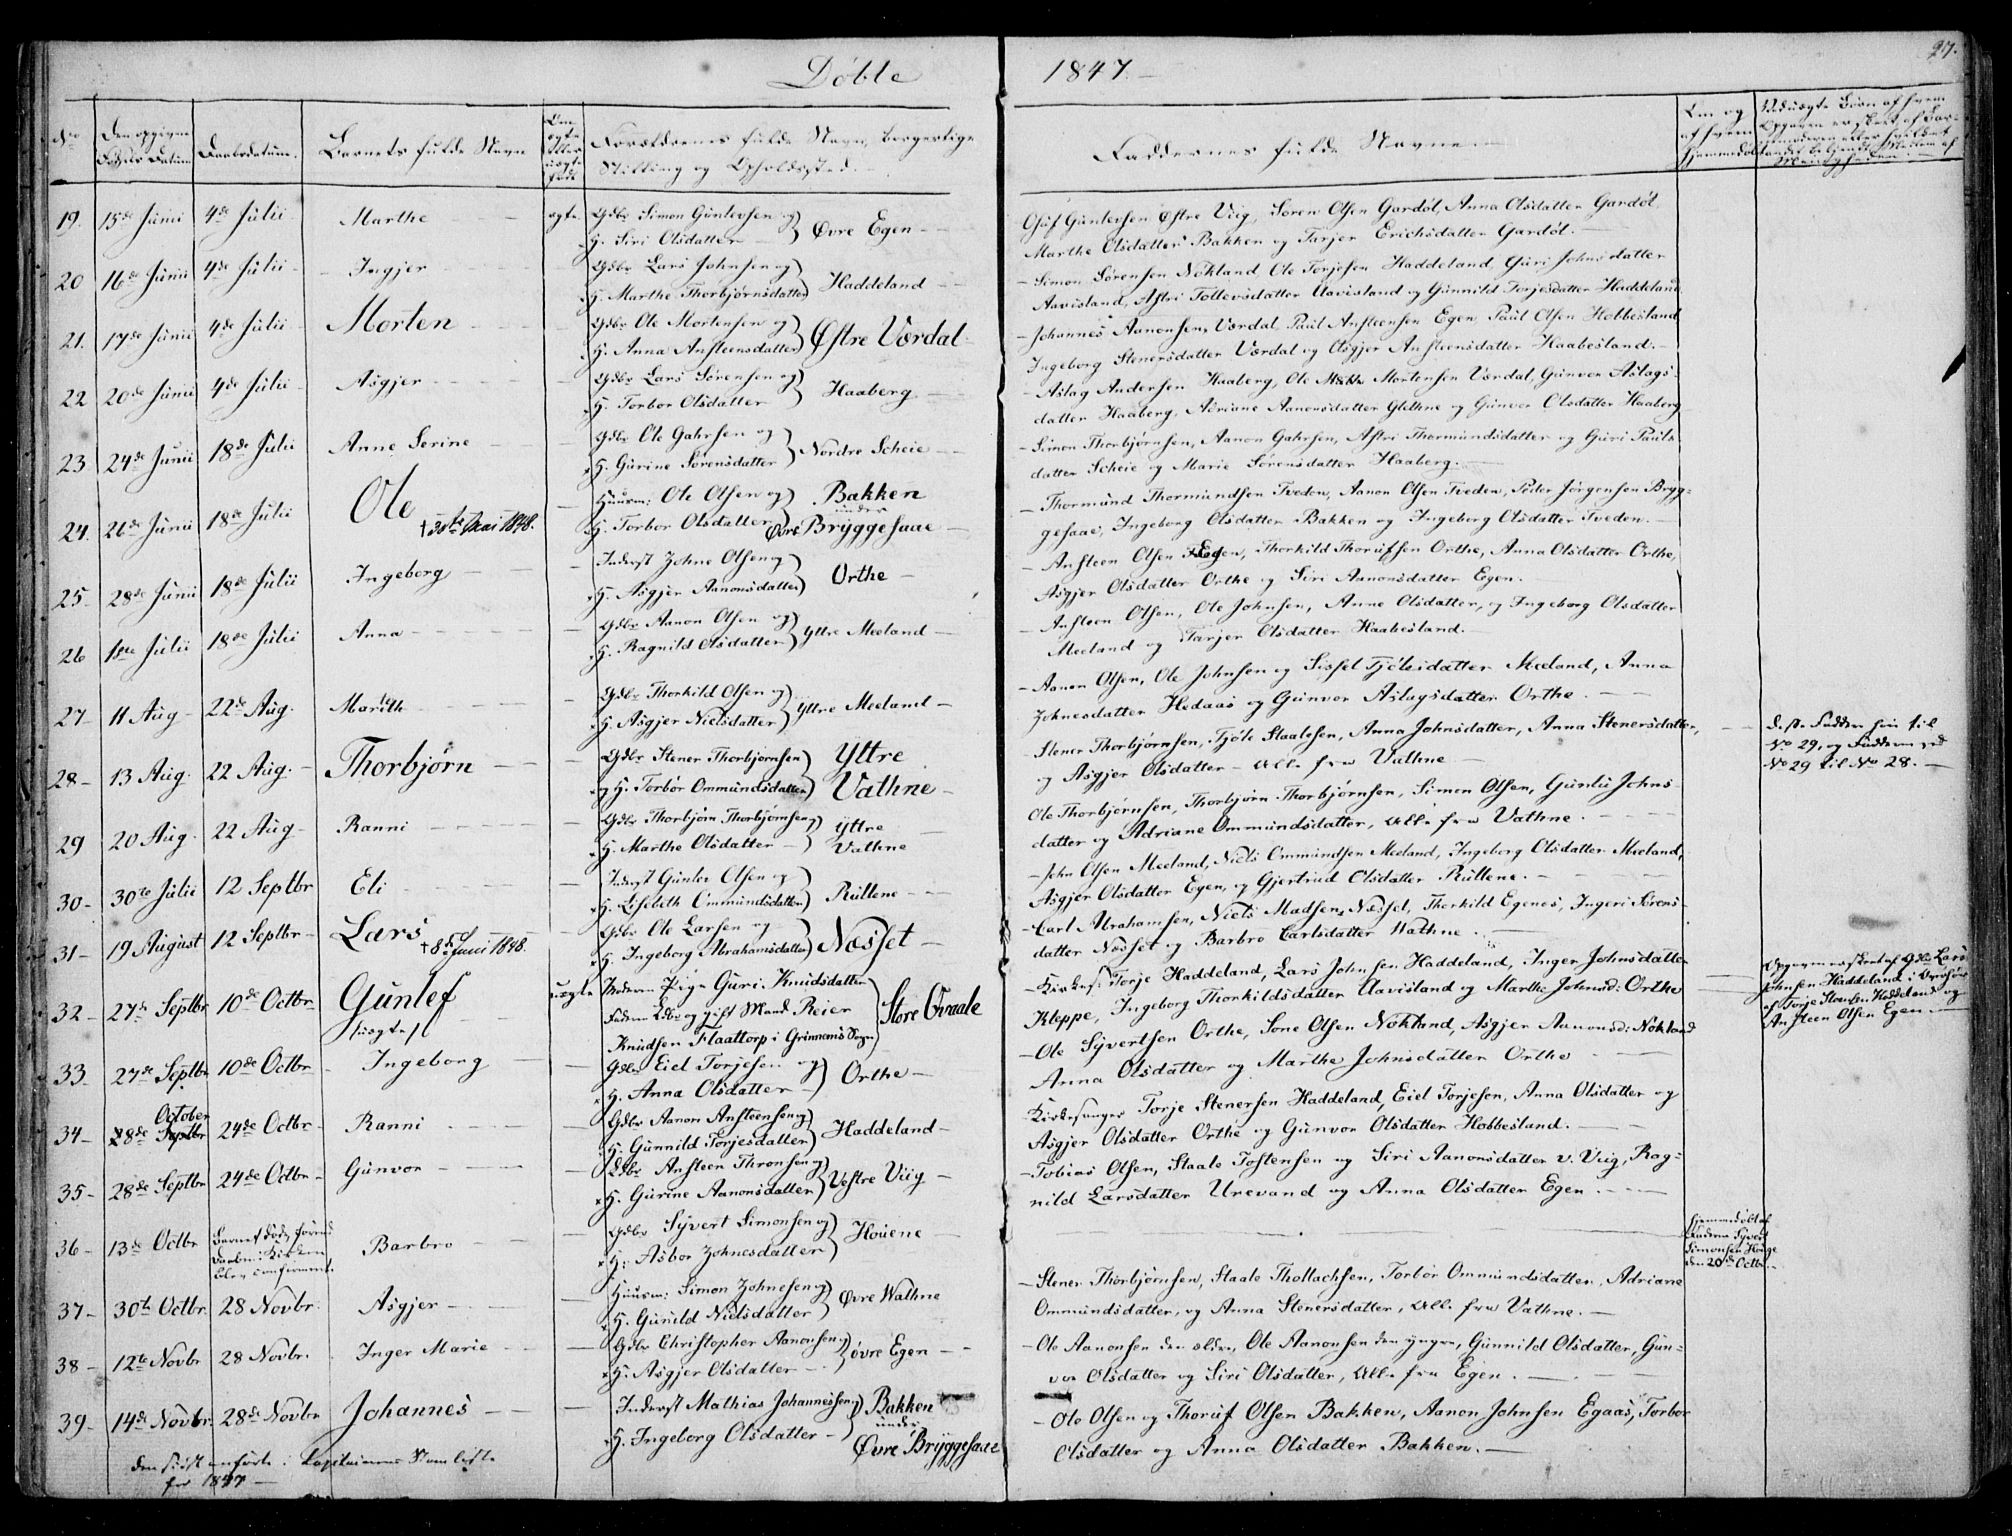 Døbte
1847.
27.
No
Den opgivne Fødsels Datum
Daabsdatum.
Barnets fulde Navn
Om ægte eller uægte født
Forældrenes fulde Navn, borgerlige
Stilling og Opholdssted.
Faddernes fulde Navne.
Om og af hvem hjemmedøbt
19. 15de Junii 4de Julii Marthe ægte Gdbr Simon Gunlevsen og
H. Siri Olsdatter Øvre Egen
Marthe Olsdatter Bakken og Tarjer Erichsdatter Gardøl.
20 16de Junii 4de Julii Ingjer Gdbr Lars Johnsen og
H. Marthe Thorbjørnsdatter Haddeland
Simon Sørensen Nökland, Ole Torjesen Haddeland, Guri Johnsdatter
Aavisland, Astri Tollevsdatter Aavisland og Gunnild Torjesdatter Haddeland
21. 17de Junii 4de Julii Morten Gdbr Ole Mortensen og
H. Anna Ansteensdatter Østre Værdal
Johannes Aanonsen Værdal, Paul Ansteensen Egen, Paul Olsen Hobbesland
Ingeborg Stenersdatter Værdal og Asgjer Ansteensdatter Haabesland.
22 20de Junii 4de Julii Asgjer Gdbr Lars Sørensen og
H. Torbor Olsdatter Haaberg
Aslag Andersen Haaberg, Ole Mortensen Værdal, Gunvor Aslags-
datter Haaberg, Adriane Aanonsdatter Glethne og Gunvor Olsdatter Haaberg
23 24de Junii 18de Julii Anne Serine Gdbr Ole Gahrsen og
H. Gurine Sørensdatter Nordre Scheie
Simon Thorbjørnsen, Aanon Gahrsen, Astri Thormundsdatter og Guri Pauls-
datter Scheie og Marie Sørensdatter Haaberg.
24. 26de Junii 18de Julii Ole Huusm: Ole Olsen og Bakken
† 30te Mai 1848. H. Torbor Olsdatter under Øvre Bryggesaae
Thormund Thormundsen Tveden, Aanon Olsen Tveden, Peder Jørgensen Bryg-
gesaae, Ingeborg Olsdatter Bakken og Ingeborg Olsdatter Tveden.
25 28de Junii 18de Julii Ingeborg Inderst Johne Olsen og
H. Asgjer Aanonsdatter Orthe
Ansteen Olsen Egen, Thorkild Thorufsen Orthe, Anna Olsdatter Orthe,
Asgjer Olsdatter Orthe og Siri Aanonsdatter Egen.
26 1ste Julii 18de Julii Anna Gdbr Aanon Olsen og
H. Ragnild Olsdatter Yttre Meeland
Ansteen Olsen, Ole Johnsen, Anne Olsdatter, og Ingeborg Olsdatter
Meeland og Tarjer Olsdatter Haabesland.
27 11 Aug 22de Aug. Marthe Gdbr Thorkild Olsen og
H. Asgjer Nielsdatter Yttre Meeland
Aanon Olsen, Ole Johnsen og Sissel Tjölsdatter Meeland, Anna
Johnesdatter Hedaas og Gunvor Aslagsdatter Orthe.
28 13 Aug. 22 Aug. Thorbjørn Gdbr Stener Thorbjørnsen
og H. Torbor Ommundsdatter Yttre Vathne
Stener Thorbjørnsen, Tjöle Staalesen, Anna Johnsdatter, Anna Stenersdatter,
og Asgjer Olsdatter - alle fra Vathne
No 29, og Fadderne ved
No 29 til No 28.
29 20 Aug. 22 Aug Ranni Gdbr Thorbjørn Thorbjørnsen og
H. Marthe Olsdatter Yttre Vathne
Ole Thorbjørnsen, Thorbjørn Thorbjørnsen, Simon Olsen, Gunlu Johns-
datter og Adriane Ommundsdatter, alle fra Vathne.
30 30te Julii 12 Septbr Eli Inderst Gunlev Olsen og
H. Lisebeth Ommundsdatter Rullene
John Olsen Meeland, Niels Ommundsen Meeland, Ingeborg Olsdatter Meeland,
Asgjer Olsdatter Egen, og Gjertrud Olsdatter Rullene.
31 19 August 12 Septbr Lars Gdbr Ole Larsen og
† 8de Junii 1848. H. Ingeborg Abrahamsdatter Næsset
Carl Abrahamsen, Niels Madsen Næsset, Thorkild Egenes, Ingeri Sørens-
datter Næsset og Barbro Carlsdatter Wathne.
32 27de Septbr 10de Octbr Gunlef uægte Moderen Pige Guri Knudsdatter
(uægte) Faderen Gdbr og gift Mand Reier Store Qvaale
Knudsen Flaattorp i Grimnæs Sogn
Kirkes: Torje Haddeland, Lars Johnsen Haddeland, Inger Johnsdatter
Kleppe, Ingeborg Thorkildsdatter Aavisland og Marthe Johnsd: Orthe
Opgaven er skeet af Gdbr Lars
Johnsen Haddeland i Overvær
af Torje Stensen Haddeland og
Ansteen Olsen Egen.
33 27de Septbr 10de Octbr Ingeborg Gdbr Eiel Torjesen og
H. Anna Olsdatter Orthe
Ole Syvertsen Orthe, Sone Olsen Nökland, Asgjer Aanonsd: Nökland
Anna Olsdatter og Marthe Johnsdatter Orthe
34 28de October Septbr 24de Octbr Ranni Gdbr Aanon Ansteensen og
H. Gunnild Torjesdatter Haddeland
Kirkesanger Torje Stenersen Haddeland, Eiel Torjesen, Anna Olsdatter og
Asgjer Olsdatter Orthe og Gunvor Olsdatter Hobbesland.
35 28de Septbr 24de Octbr Gunvor Gdbr Ansteen Thronsen og
H. Gurine Aanonsdatter Vestre Viig
Tobias Olsen, Staale Tostensen og Siri Aanonsdatter v. Viig, Rag-
nild Larsdatter Urevand og Anna Olsdatter Egen.
36 13de Octbr Barnet døde førend
Daaben i Kirken
blev confirmert. Barbro Gdbr Syvert Simonsen og
H: Asbor Johnesdatter Houene
hjemmedøbt af
Faderen Syvert
Simonsen Houge
den 20de Octbr.
37 30te Octbr. 28 Novbr. Asgjer Huusm: Simon Johnesen og
H. Gunild Nielsdatter Øvre Wathne
Stener Thorbjørnsen, Staale Thollachsen, Torbor Ommundsdatter, Adriane
Ommundsdatter, og Anna Stenersdatter, alle fra Vathne.
38 12te Novbr 28 Novbr. Inger Marie Gdbr Christopher Aanonsen og
H. Asgjer Olsdatter øvre Egen
Ole Aanonsen den ældre, Ole Aanonsen den yngre, Gunnild Olsdatter, Gun-
vor Olsdatter og Siri Olsdatter, alle fra Egen.
39. 14de Novbr. 28de Novbr Johannes Inderst Mathias Johannessen og Bakken
H. Ingeborg Olsdatter under Øvre Bryggesaae
Ole Olsen og Thoruf Olsen Bakken, Aanon Johnsen Egaas, Torbor
Olsdatter og Anna Olsdatter Bakken.
den sidst anførte i Capitainens Rulleliste
for 1847